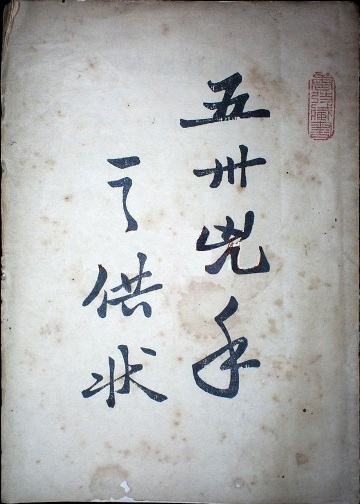 五卅兇手
之供状